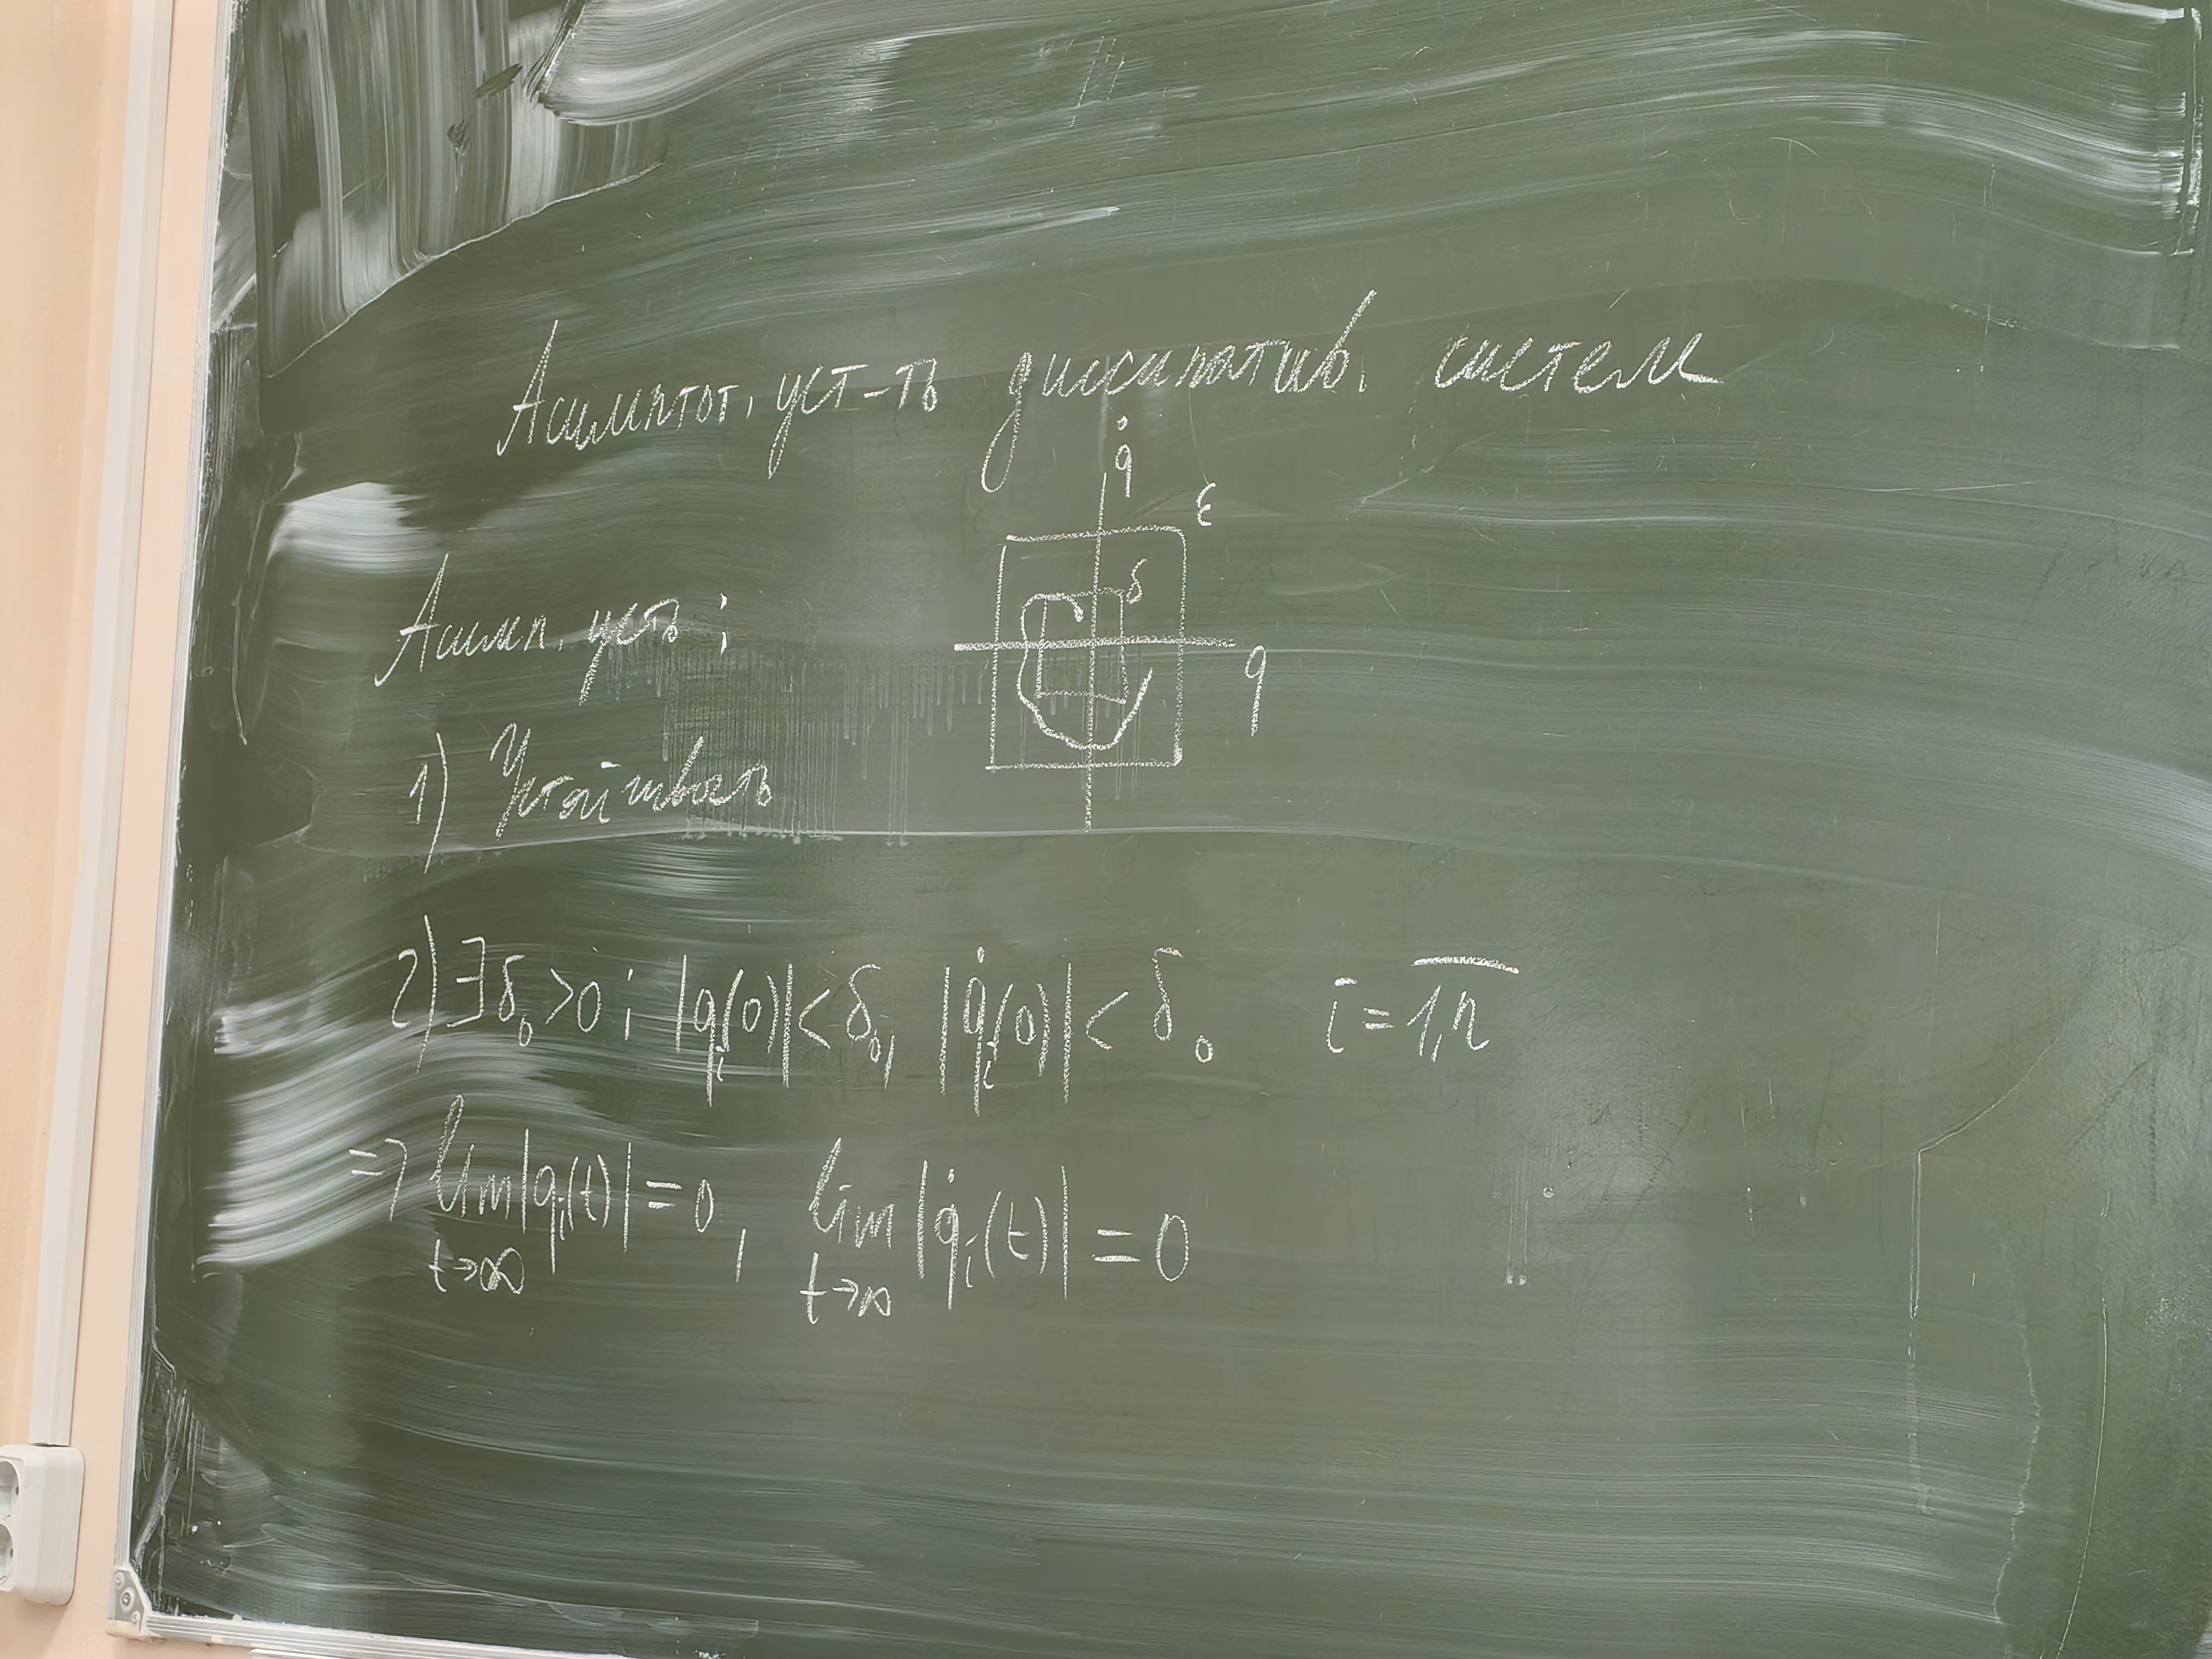 Асимптот. уст-ть диссипатив. систем
q̇
ε
δ
q
Асимп. усть:
1) Устойчивость
2) ∃ δ₀ > 0 : |qᵢ(0)| < δ₀, |q̇ᵢ(0)| < δ₀ i = 1,n̅
=> lim |qᵢ(t)| = 0, lim |q̇ᵢ(t)| = 0
t→∞ t→∞